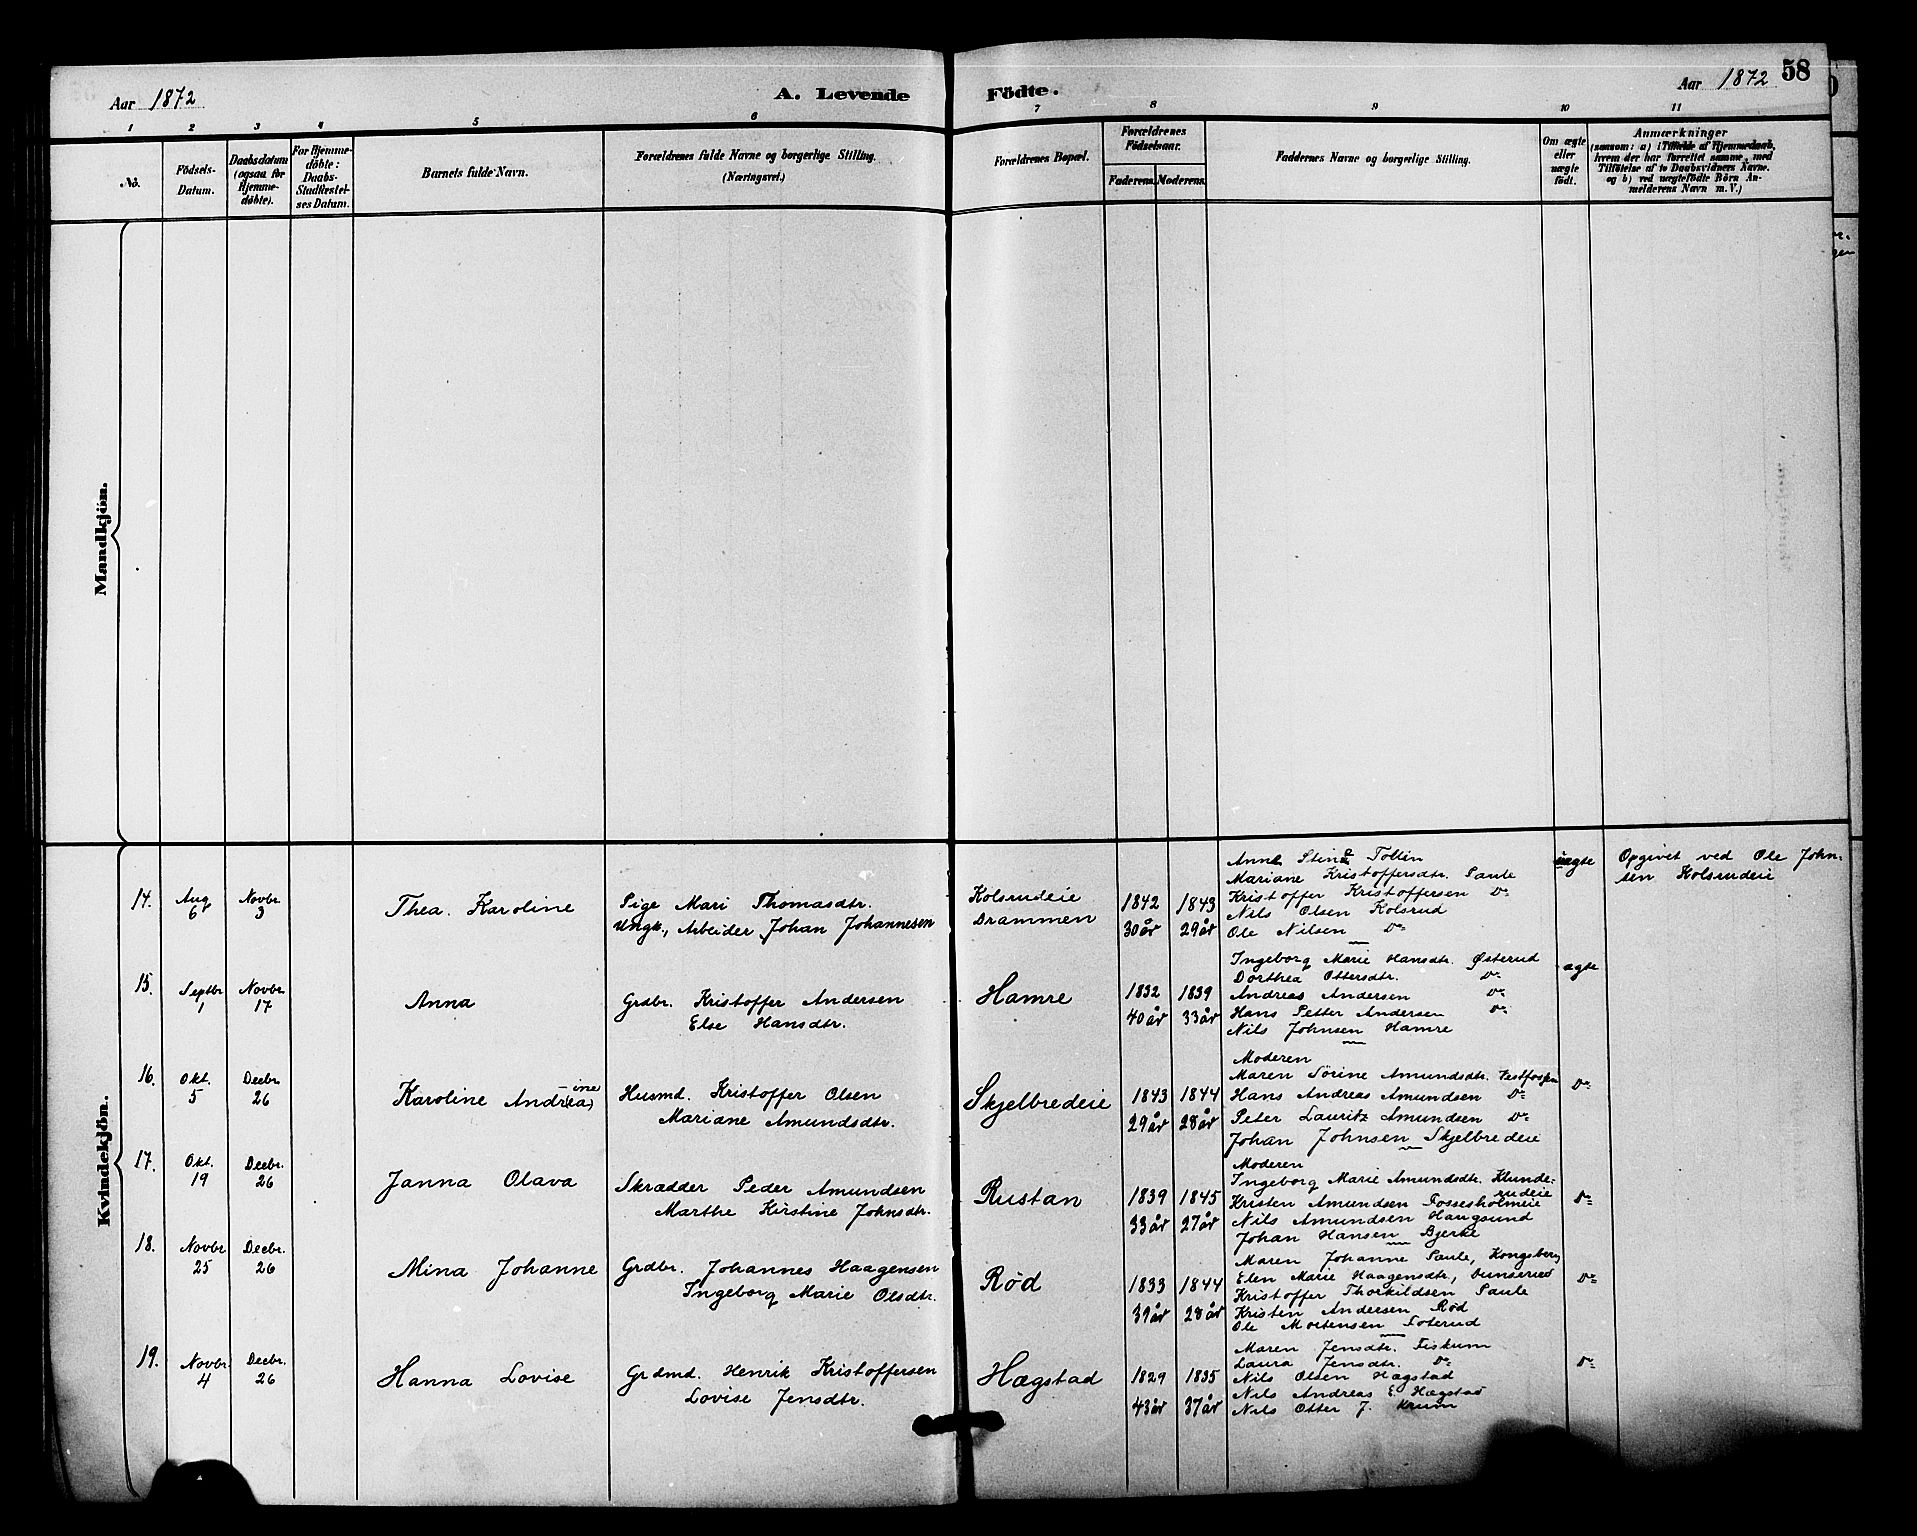 58
Aar 1872
A. Levende Födte.
Aar 1872
1 2 3 4 5 6 7 8 9 10 11
No.
Födsels-
Datum.
Daabsdatum
(ogsaa for
Hjemme-
döbte).
For Hjemme-
döbte:
Daabs-
Stadfæstel-
ses Datum.
Barnets fulde Navn.
Forældrenes fulde Navne og borgerlige Stilling.
(Næringsvei.)
Forældrenes Bopæl.
Forældrenes
Födselsaar.
Faderens. Moderens.
Faddernes Navne og borgerlige Stilling.
Om ægte
eller
uægte
födt.
Anmærkninger
(saasom: a) i Tilfælde af Hjemmedaab,
hvem der har forrettet samme, med
Tilföielse af to Daabsvidners Navne,
og b) ved uægtefödte Börn An-
melderens Navn m. V.)
Mandkjön.
Kvindekjön.
14.
Aug.
6
Novbr.
3
Thea Karoline
Pige Mari Thomasdtr.
Ungk., Arbeider Johan Johannesen
Kolsrudeie
Drammen
1842
30 år
1843
29 år
Anne Stine Tollin
Mariane Kristoffersdtr. Saule
Kristoffer Kristoffersen Do
Nils Olsen Kolsrud
Ole Nilsen Do
uægte
Opgivet ved Ole John-
sen Kolsrudeie
15.
Septbr.
1
Novbr.
17
Anna
Grdbr. Kristoffer Andersen
Else Hansdtr.
Hamre
1832
40 år
1839
33 år
Ingeborg Marie Hansdtr. Østerud
Dorthea Ottersdtr. Do
Andreas Andersen Do
Hans Petter Andersen Do
Nils Johnsen Hamre
ægte
16.
Okt.
5
Decbr.
26
Karoline Andr(ea)
-ine
Husmd. Kristoffer Olsen
Mariane Amundsdtr.
Skjelbredeie
1843
29 år
1844
28 år
Moderen
Maren Sørine Amundsdtr. Vestfossen
Hans Andreas Amundsen Do
Peter Lauritz Amundsen Do
Johan Johnsen Skjelbredeie
Do
17.
Okt.
19
Decbr.
26
Janna Olava
Skrædder Peder Amundsen
Marthe Kirstine Johnsdtr.
Rustan
1839
33 år
1845
27 år
Moderen
Ingeborg Marie Amundsdtr. Klunde-
rudeie
Kristen Amundsen Fossesholmeie
Nils Amundsen Haugsund
Johan Hansen Bjerke
Do
18.
Novbr.
25
Decbr.
26
Mina Johanne
Grdbr. Johannes Haagensen
Ingeborg Marie Olsdtr.
Rød
1833
39 år
1844
28 år
Maren Johanne Saule, Kongsberg
Elen Marie Haagensdtr,
Kristoffer Thorkildsen Saule
Kristen Andersen Rød
Ole Mortensen Loterud
Do
19.
Novbr.
4
Decbr.
26
Hanna Lovise
Grdmd. Henrik Kristoffersen
Lovise Jensdtr.
Hægstad
1829
43 år
1835
37 år
Maren Jensdtr. Fiskum
Laura Jensdtr. Do
Nils Olsen Hægstad
Nils Andreas E. Hægstad
Nils Otter J. Krum
Do